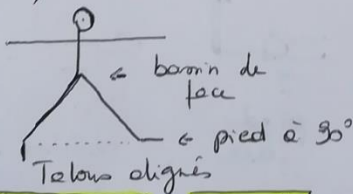 ← bassin de
face
← pied à 90°
Talons alignés